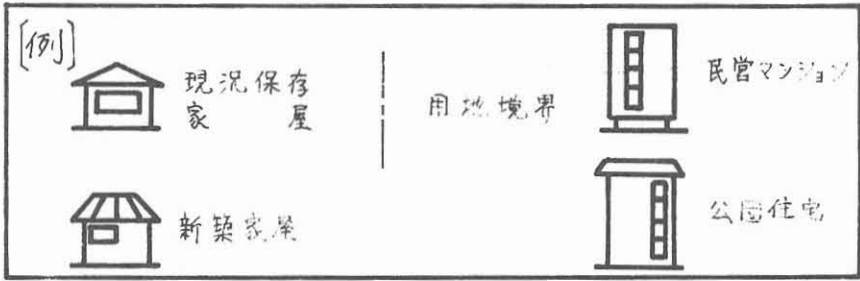 [例]
現況保存
家屋
用地境界
民営マンション
新築家屋
公団住宅